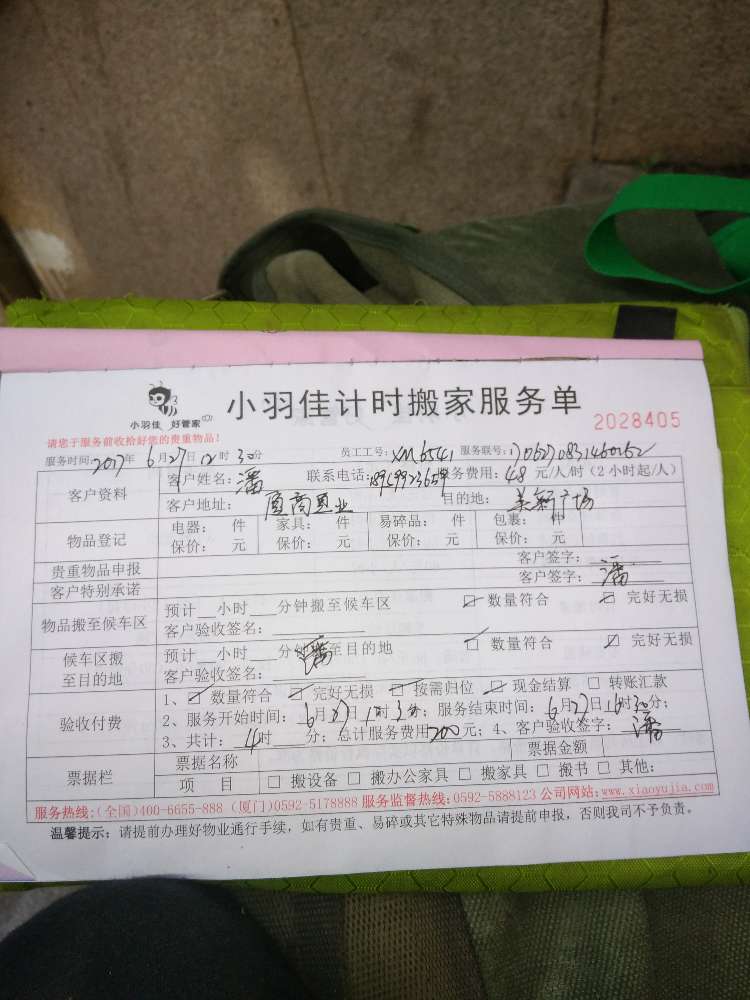 小羽佳 好管家
小羽佳计时搬家服务单
2028405
请您于服务前收拾好您的贵重物品！
服务时间：2017年6月27日12时30分 员工工号：XM6541 服务联号：
客户资料 客户姓名：潘 联系电话： 服务费用：48元/人/时（2小时起/人）
客户地址： 目的地：
物品登记 电器： 件 家具： 件 易碎品： 件 包裹： 件
保价： 元 保价： 元 保价： 元 保价： 元
贵重物品申报 客户签字：
客户特别承诺 客户签字：潘
物品搬至候车区 预计 小时 分钟搬至候车区 数量符合 完好无损
客户验收签名：
候车区搬至目的地 预计 小时 分钟 至目的地 数量符合 完好无损
客户验收签名：潘
验收付费 1、数量符合 完好无损 按需归位 现金结算 转账汇款
2、服务开始时间：6月27日 时 分；服务结束时间：6月27日16时30分；
3、共计：4时 分；总计服务费用200元；4、客户验收签字：潘
票据栏 票据名称 票据金额
项 目 搬设备 搬办公家具 搬家具 搬书 其他：
服务热线：（全国）400-6655-888（厦门）0592-5178888 服务监督热线：0592-5888123 公司网站：www.xiaoyujia.com
温馨提示：请提前办理好物业通行手续，如有贵重、易碎或其它特殊物品请提前申报，否则我司不予负责。